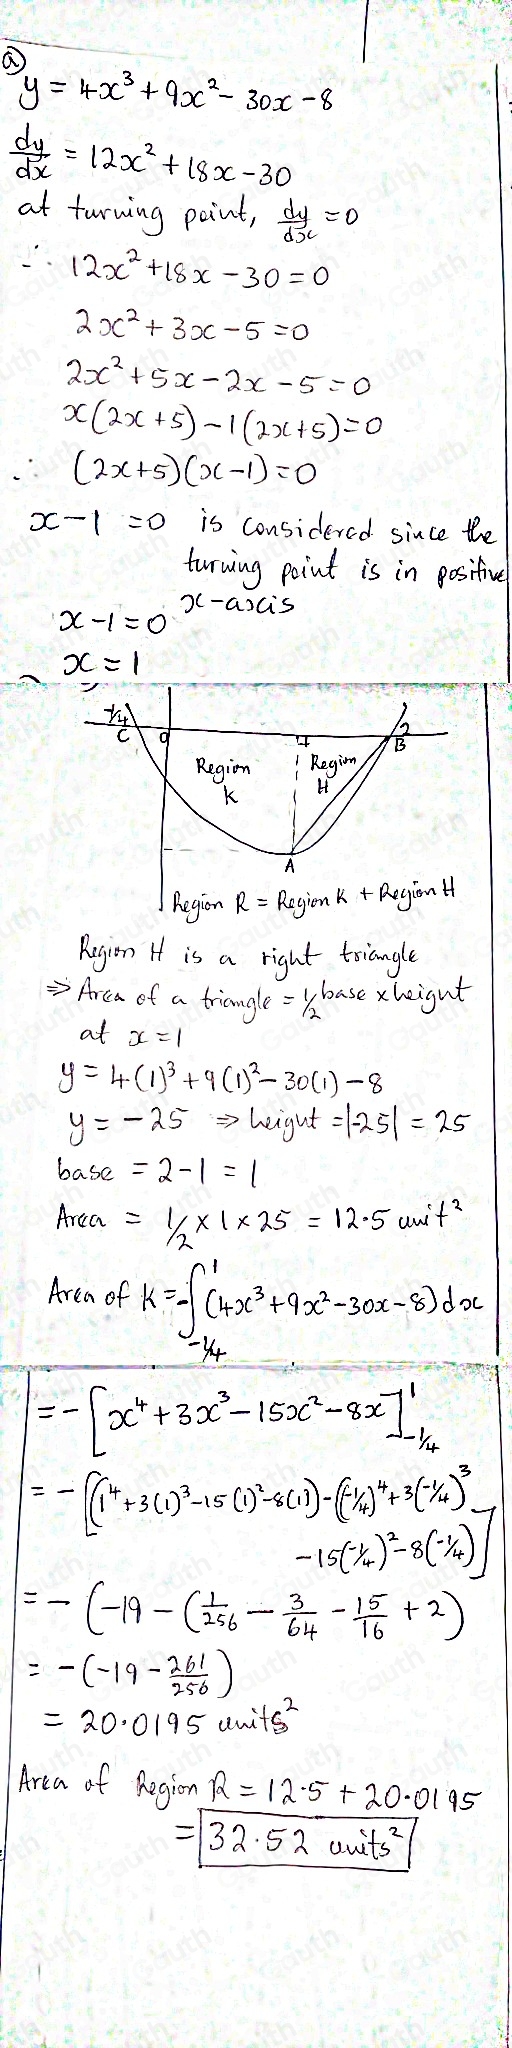 (a)
y = 4x³ + 9x² - 30x - 8
dy/dx = 12x² + 18x - 30
at turning point, dy/dx = 0
∴ 12x² + 18x - 30 = 0
2x² + 3x - 5 = 0
2x² + 5x - 2x - 5 = 0
x(2x + 5) - 1(2x + 5) = 0
∴ (2x + 5)(x - 1) = 0
x - 1 = 0 is considered since the
turning point is in positive
x-axis
x - 1 = 0
x = 1
-1/4 C 0 1 2 B
Region K
Region H
A
Region R = Region K + Region H
Region H is a right triangle
⇒ Area of a triangle = 1/2 base × height
at x = 1
y = 4(1)³ + 9(1)² - 30(1) - 8
y = -25 ⇒ height = |-25| = 25
base = 2 - 1 = 1
Area = 1/2 × 1 × 25 = 12.5 unit²
Area of K = -∫_{-1/4}^{1} (4x³ + 9x² - 30x - 8) dx
= -[x⁴ + 3x³ - 15x² - 8x]_{-1/4}^{1}
= -[(1⁴ + 3(1)³ - 15(1)² - 8(1)) - ((-1/4)⁴ + 3(-1/4)³
- 15(-1/4)² - 8(-1/4)]
= -(-19 - (1/256 - 3/64 - 15/16 + 2)
= -(-19 - 261/256)
= 20.0195 units²
Area of Region R = 12.5 + 20.0195
= 32.52 units²